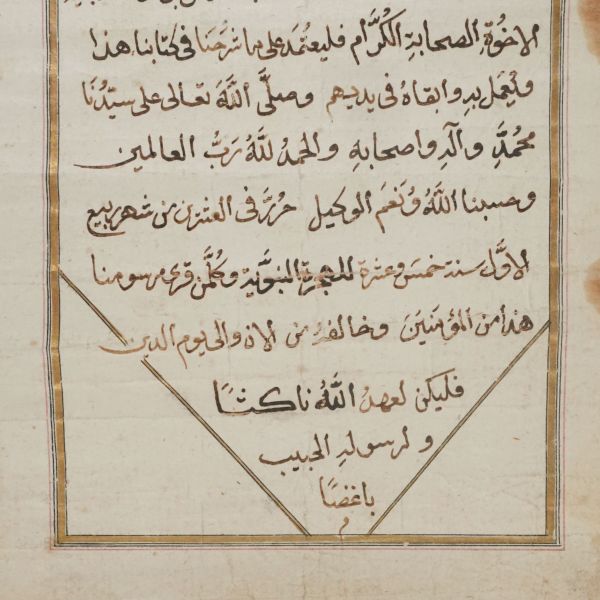 الاخوة الصحابة الكرام فليعتمد على ما شرحنا فى كتابنا هذا
وليعمل به وابقاه فى يديهم وصلى الله تعالى على سيدنا
محمد واله واصحابه والحمد لله رب العالمين
وحسبنا الله ونعم الوكيل حرر فى العشرين من شهر ربيع
الاول سنة خمس وعشرة للهجرة النبوية وكلمن قرى مرسومنا
هذا من المؤمنين وخالفه من الان والى يوم الدين
فليكن لعهد الله ناكثا
ولرسوله الحبيب
باغضا
م